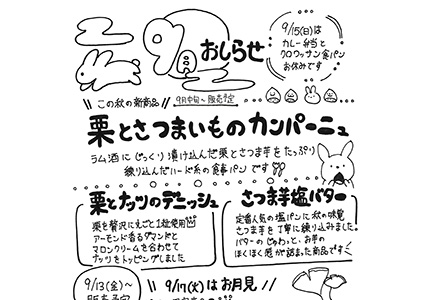 9月のおしらせ
9/15(日)は
カレー弁当と
クロワッサン食パン
お休みです
\\ この秋の新商品 //
9月中旬〜販売予定
栗とさつまいものカンパーニュ
ラム酒にじっくり漬け込んだ栗とさつま芋をたっぷり
練り込んだハード系の食事パンです
栗とナッツのデニッシュ
栗を贅沢に丸ごと1粒使用
アーモンド香るダマンドと
マロンクリームを合わせて
ナッツをトッピングしました
さつま芋塩バター
定番人気の塩パンに秋の味覚
さつま芋を丁寧に練り込みました。
バターのじゅわっと、お芋の
ほくほく感が詰まった商品です
9/13(金)〜
販売予定
\\ 9/17(火)はお月見